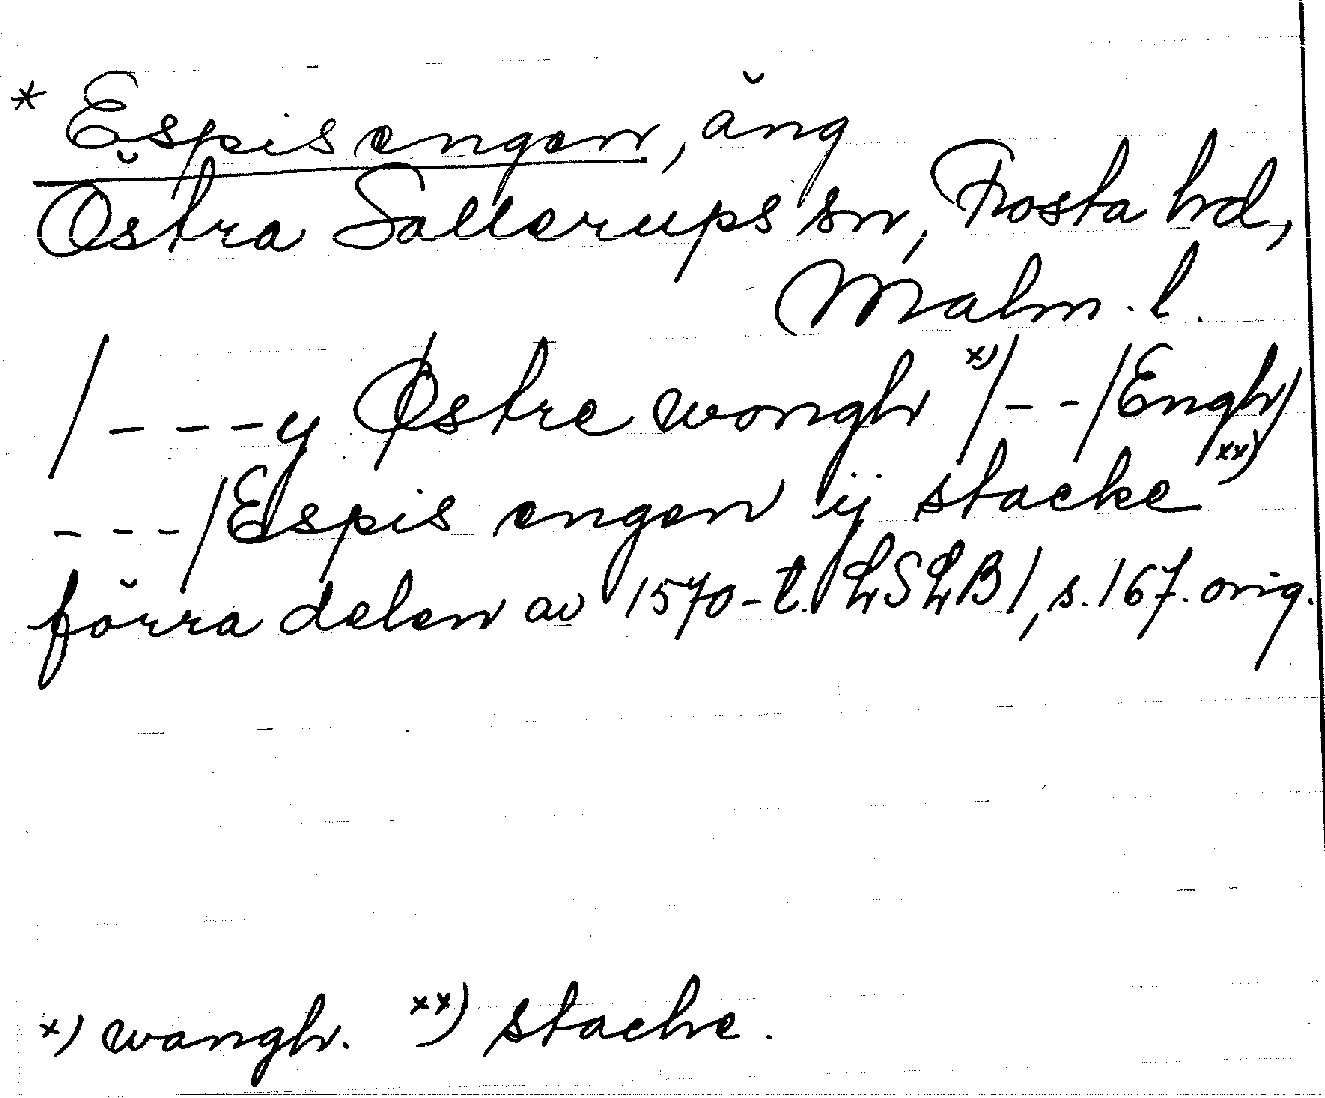 * Espis engen, äng
Östra Sallerups sn, Frosta hd,
Malm. l.
/---y Østre wongh x)/--/Engh/
---/Espis engen ij stacke xx)
förra delen av 1570-t. LSLB1, s. 167. orig.
x) wangh. xx) stache.